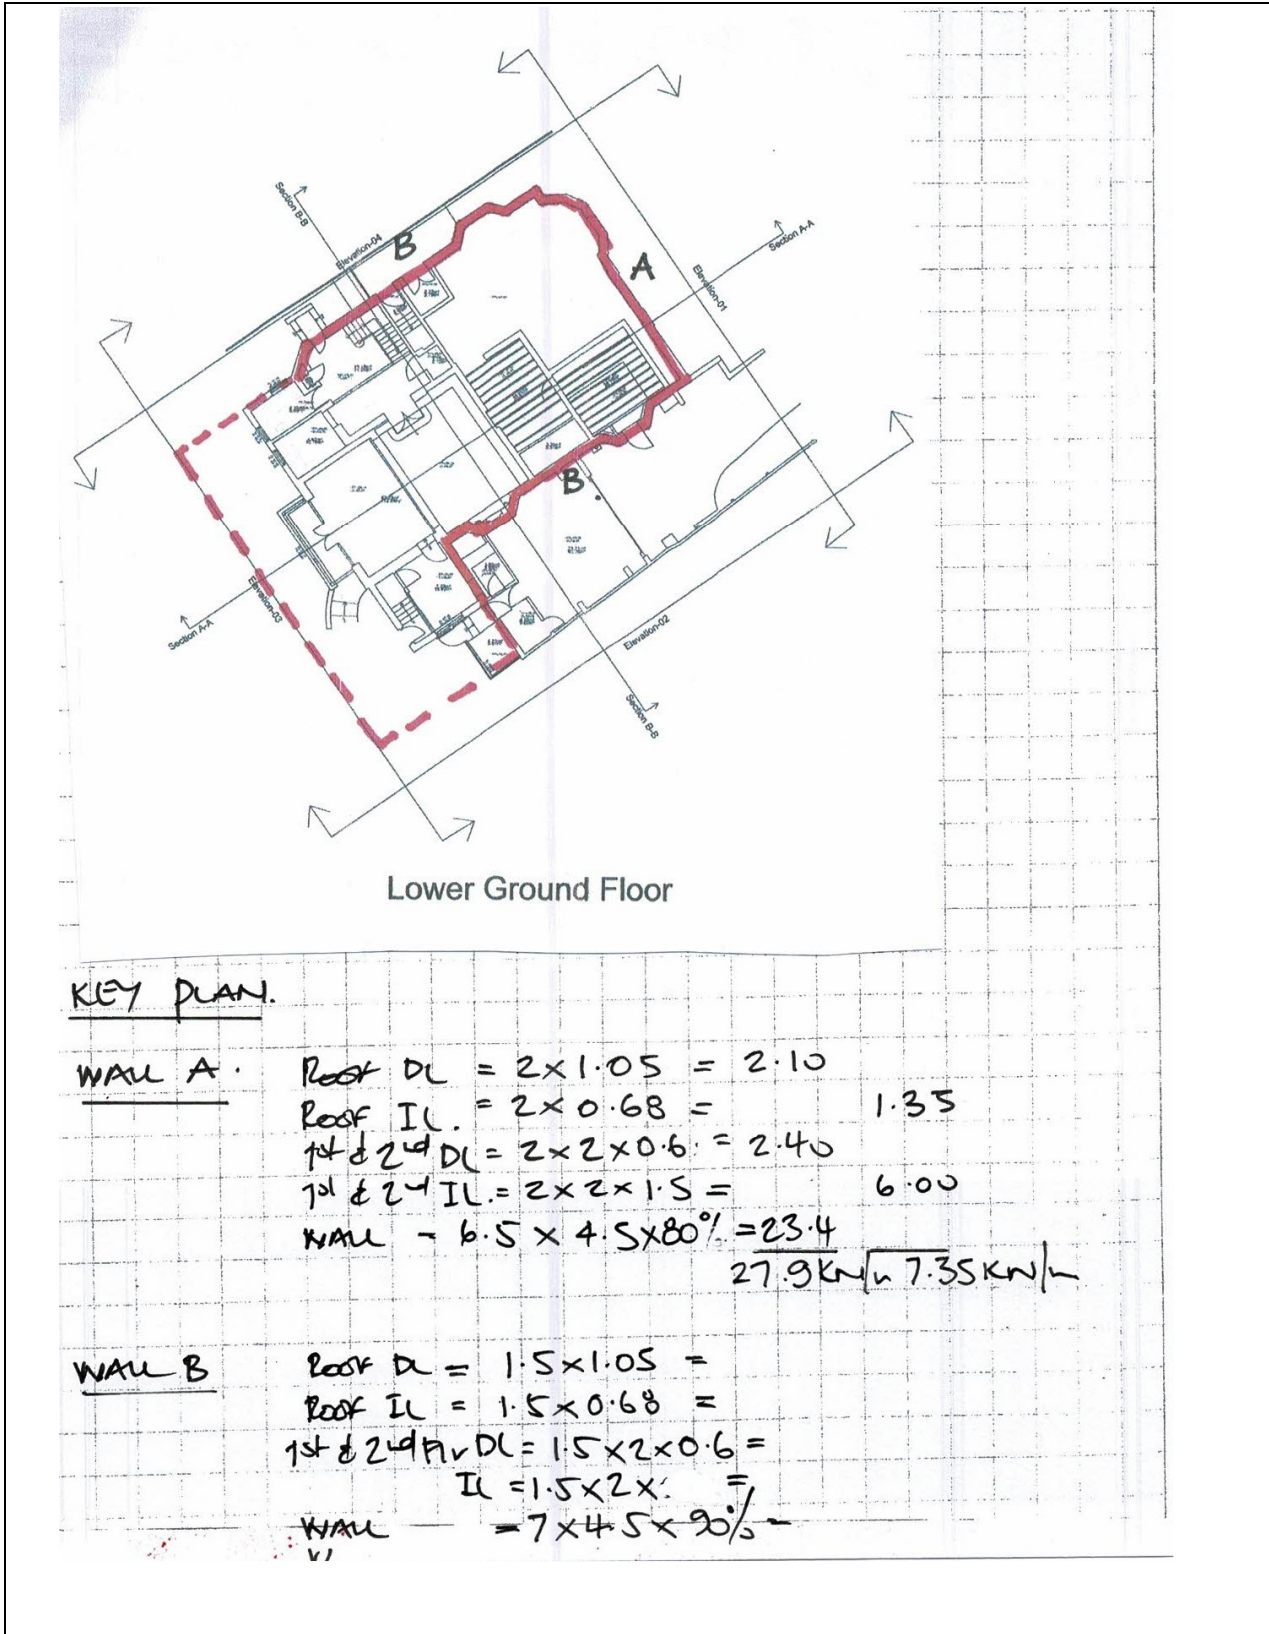 Section B-B
Elevation-04
B
A
Section A-A
Elevation-01
B
Elevation-03
Section A-A
Elevation-02
Section B-B
Lower Ground Floor
KEY PLAN.
WALL A. Roof DL = 2×1.05 = 2.10
Roof IL. = 2×0.68 = 1.35
1st & 2nd DL = 2×2×0.6. = 2.40
1st & 2nd IL. = 2×2×1.5 = 6.00
WALL - 6.5 × 4.5×80% = 23.4
27.9KN/m 7.35KN/m
WALL B Roof DL = 1.5×1.05 =
Roof IL = 1.5×0.68 =
1st & 2nd Flr DL = 1.5×2×0.6 =
IL = 1.5×2×. =
WALL = 7×4.5×90% -